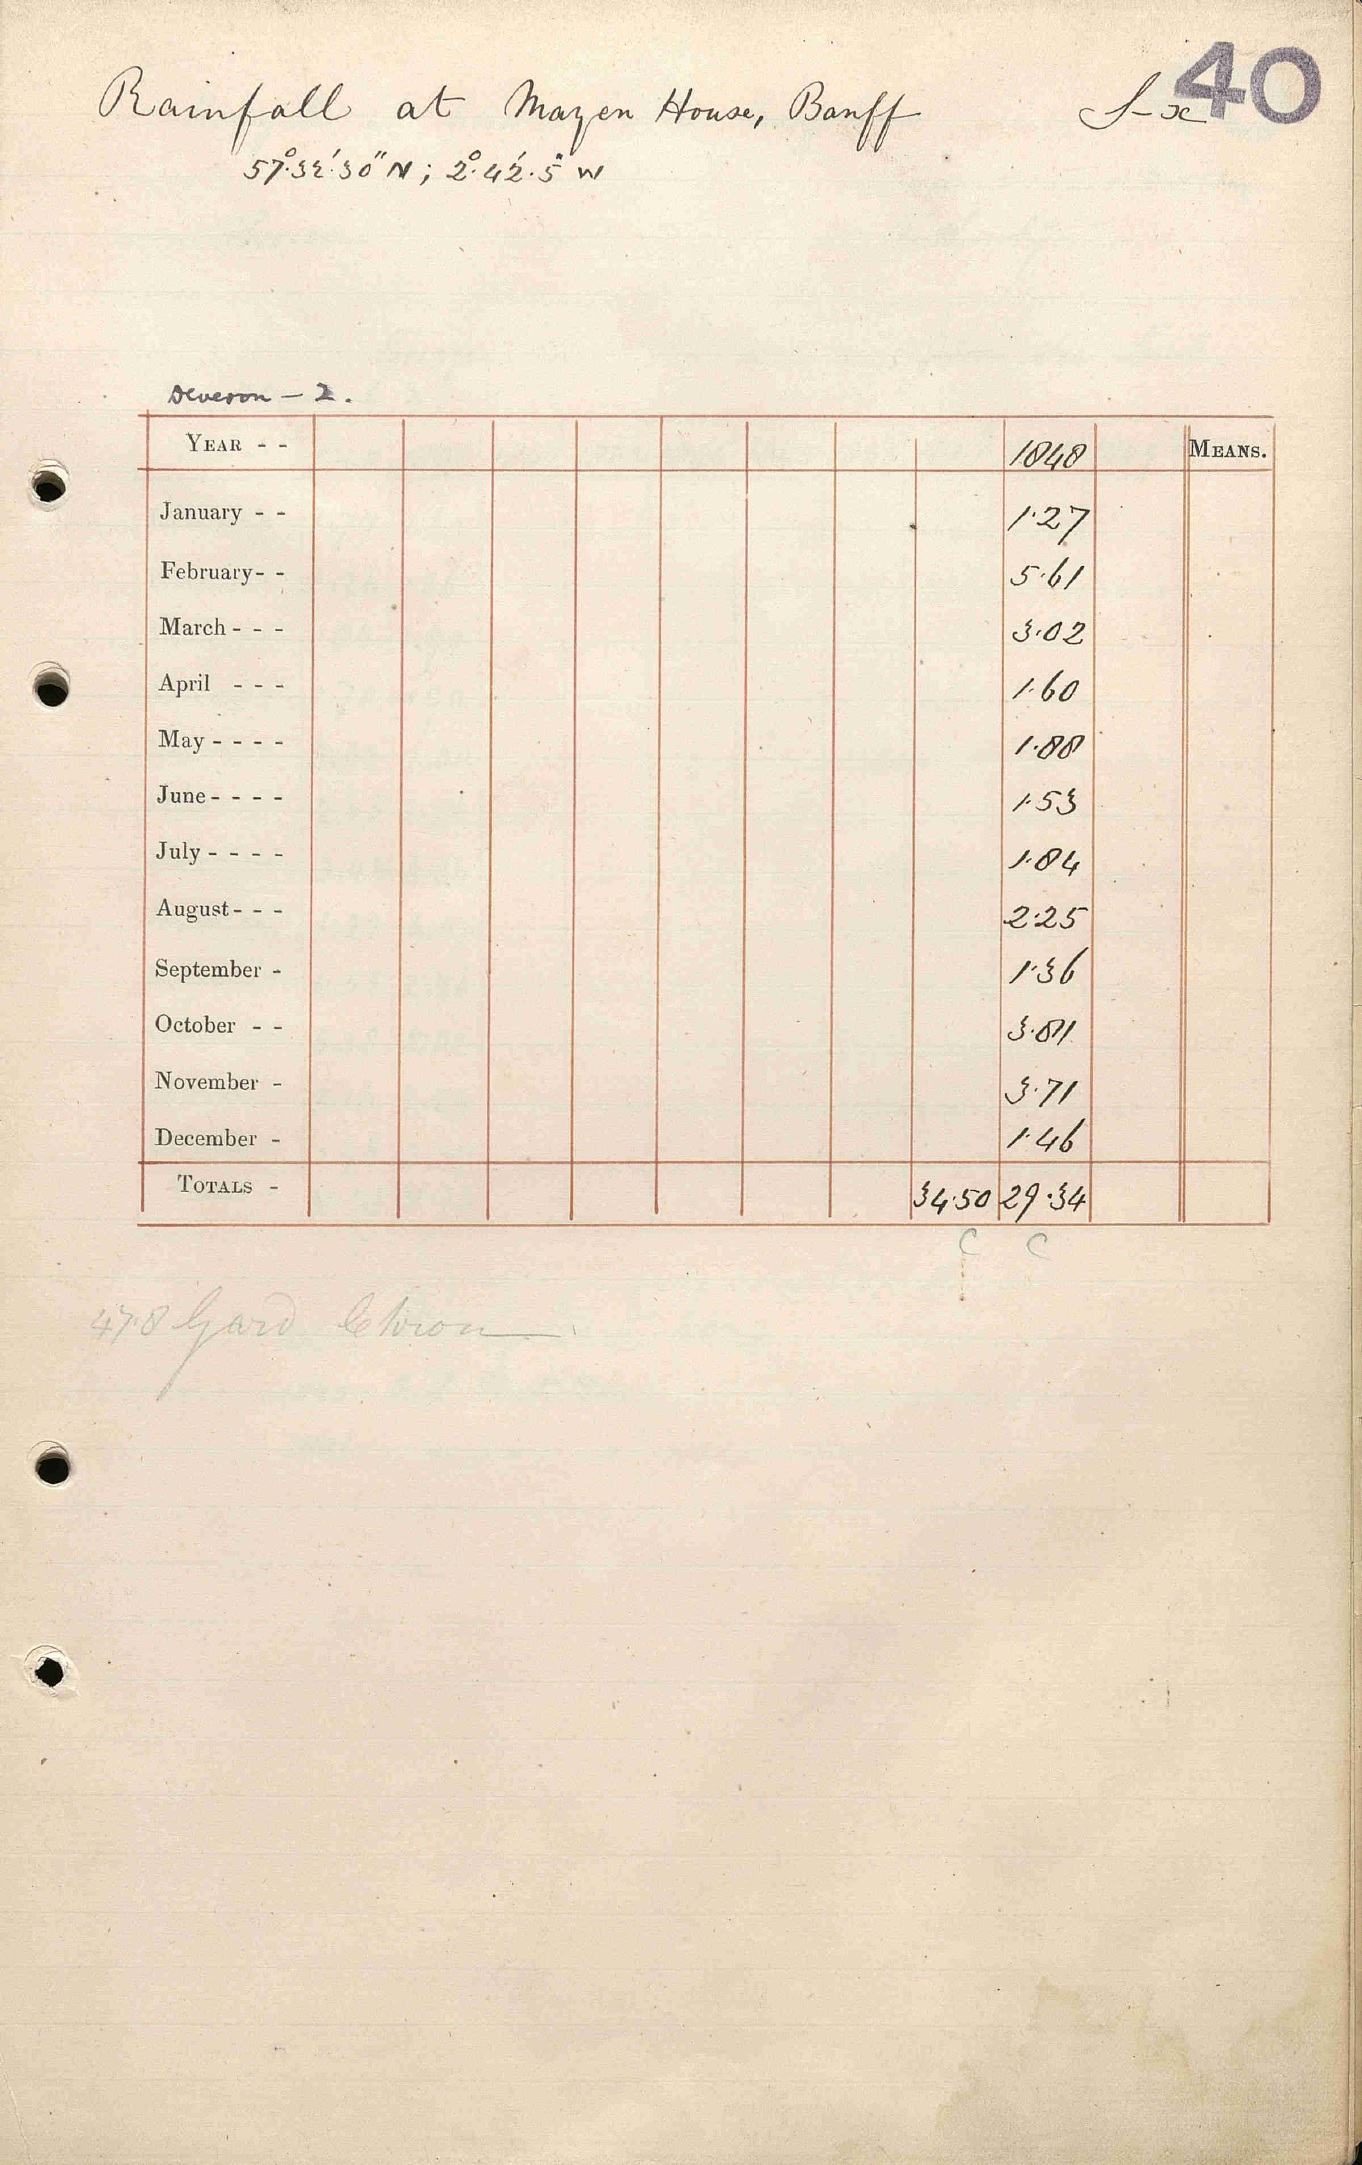 40
Rainfall at Mayen House, Banff S-x
57°.32'.30" N ; 2°.42'.5" W
Deveron - 2.
YEAR - - 1848 MEANS.
January - - 1.27
February - - 5.61
March - - - 3.02
April - - - 1.60
May - - - - 1.88
June - - - - 1.53
July - - - - 1.84
August - - - 2.25
September - 1.36
October - - 3.81
November - 3.71
December - 1.46
TOTALS - 34.50 29.34
C C
47.8 Gard Chron